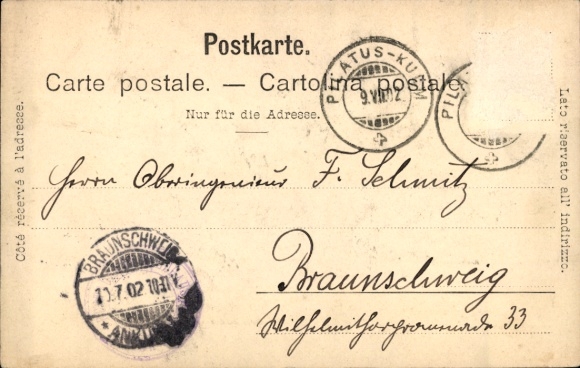 Postkarte.
Carte postale. — Cartolina postale.
Nur für die Adresse.
Côté réservé à l'adresse.
Lato riservato all' indirizzo.
PILATUS-KULM
9.VII.02
PIL
Herrn Oberingenieur F. Schmitz
Braunschweig
Wilhelmithorpromenade 33
BRAUNSCHWEIG
7.02